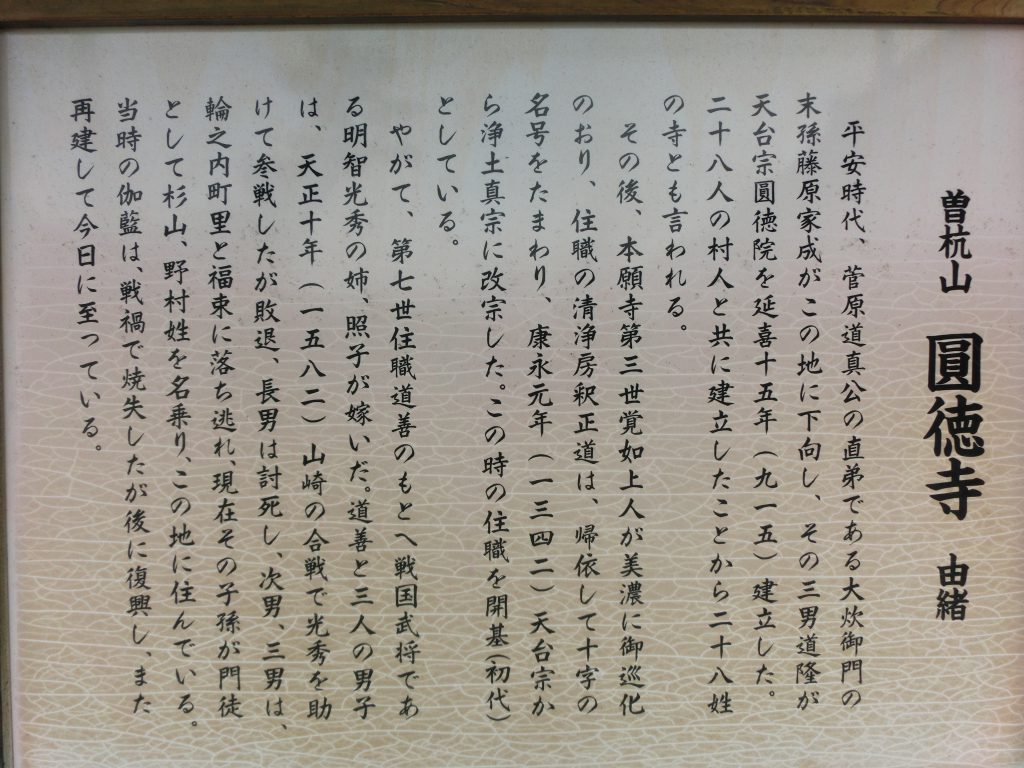 曽杭山　圓徳寺　由緒
平安時代、菅原道真公の直弟である大炊御門の
末孫藤原家成がこの地に下向し、その三男道隆が
天台宗圓徳院を延喜十五年（九一五）建立した。
二十八人の村人と共に建立したことから二十八姓
の寺とも言われる。
その後、本願寺第三世覚如上人が美濃に御巡化
のおり、住職の清浄房釈正道は、帰依して十字の
名号をたまわり、康永元年（一三四二）天台宗か
ら浄土真宗に改宗した。この時の住職を開基（初代）
としている。
やがて、第七世住職道善のもとへ戦国武将であ
る明智光秀の姉、照子が嫁いだ。道善と三人の男子
は、天正十年（一五八二）山崎の合戦で光秀を助
けて参戦したが敗退、長男は討死し、次男、三男は、
輪之内町里と福束に落ち逃れ、現在その子孫が門徒
として杉山、野村姓を名乗り、この地に住んでいる。
当時の伽藍は、戦禍で焼失したが後に復興し、また
再建して今日に至っている。